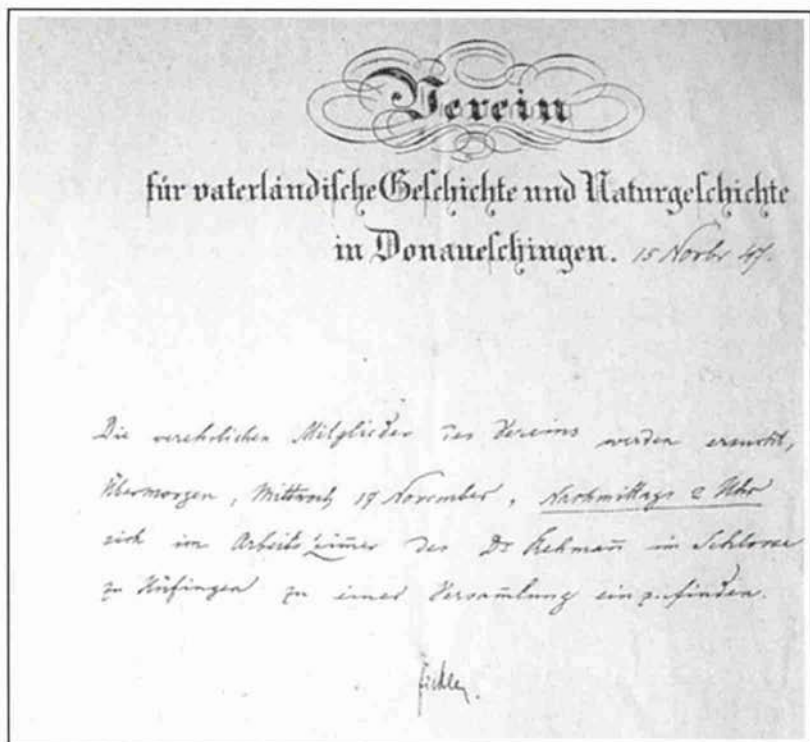 Verein
für vaterländische Geschichte und Naturgeschichte
in Donaueschingen. 15 Novbr 47.
Die verehrlichen Mitglieder des Vereins werden ersucht,
Übermorgen, Mittwoch 17 November, Nachmittags 2 Uhr
sich im Arbeitszim̄er des Dr Rehman̄ im Schlosse
zu Hüfingen zu einer Versam̄lung einzufinden.
Fickler.